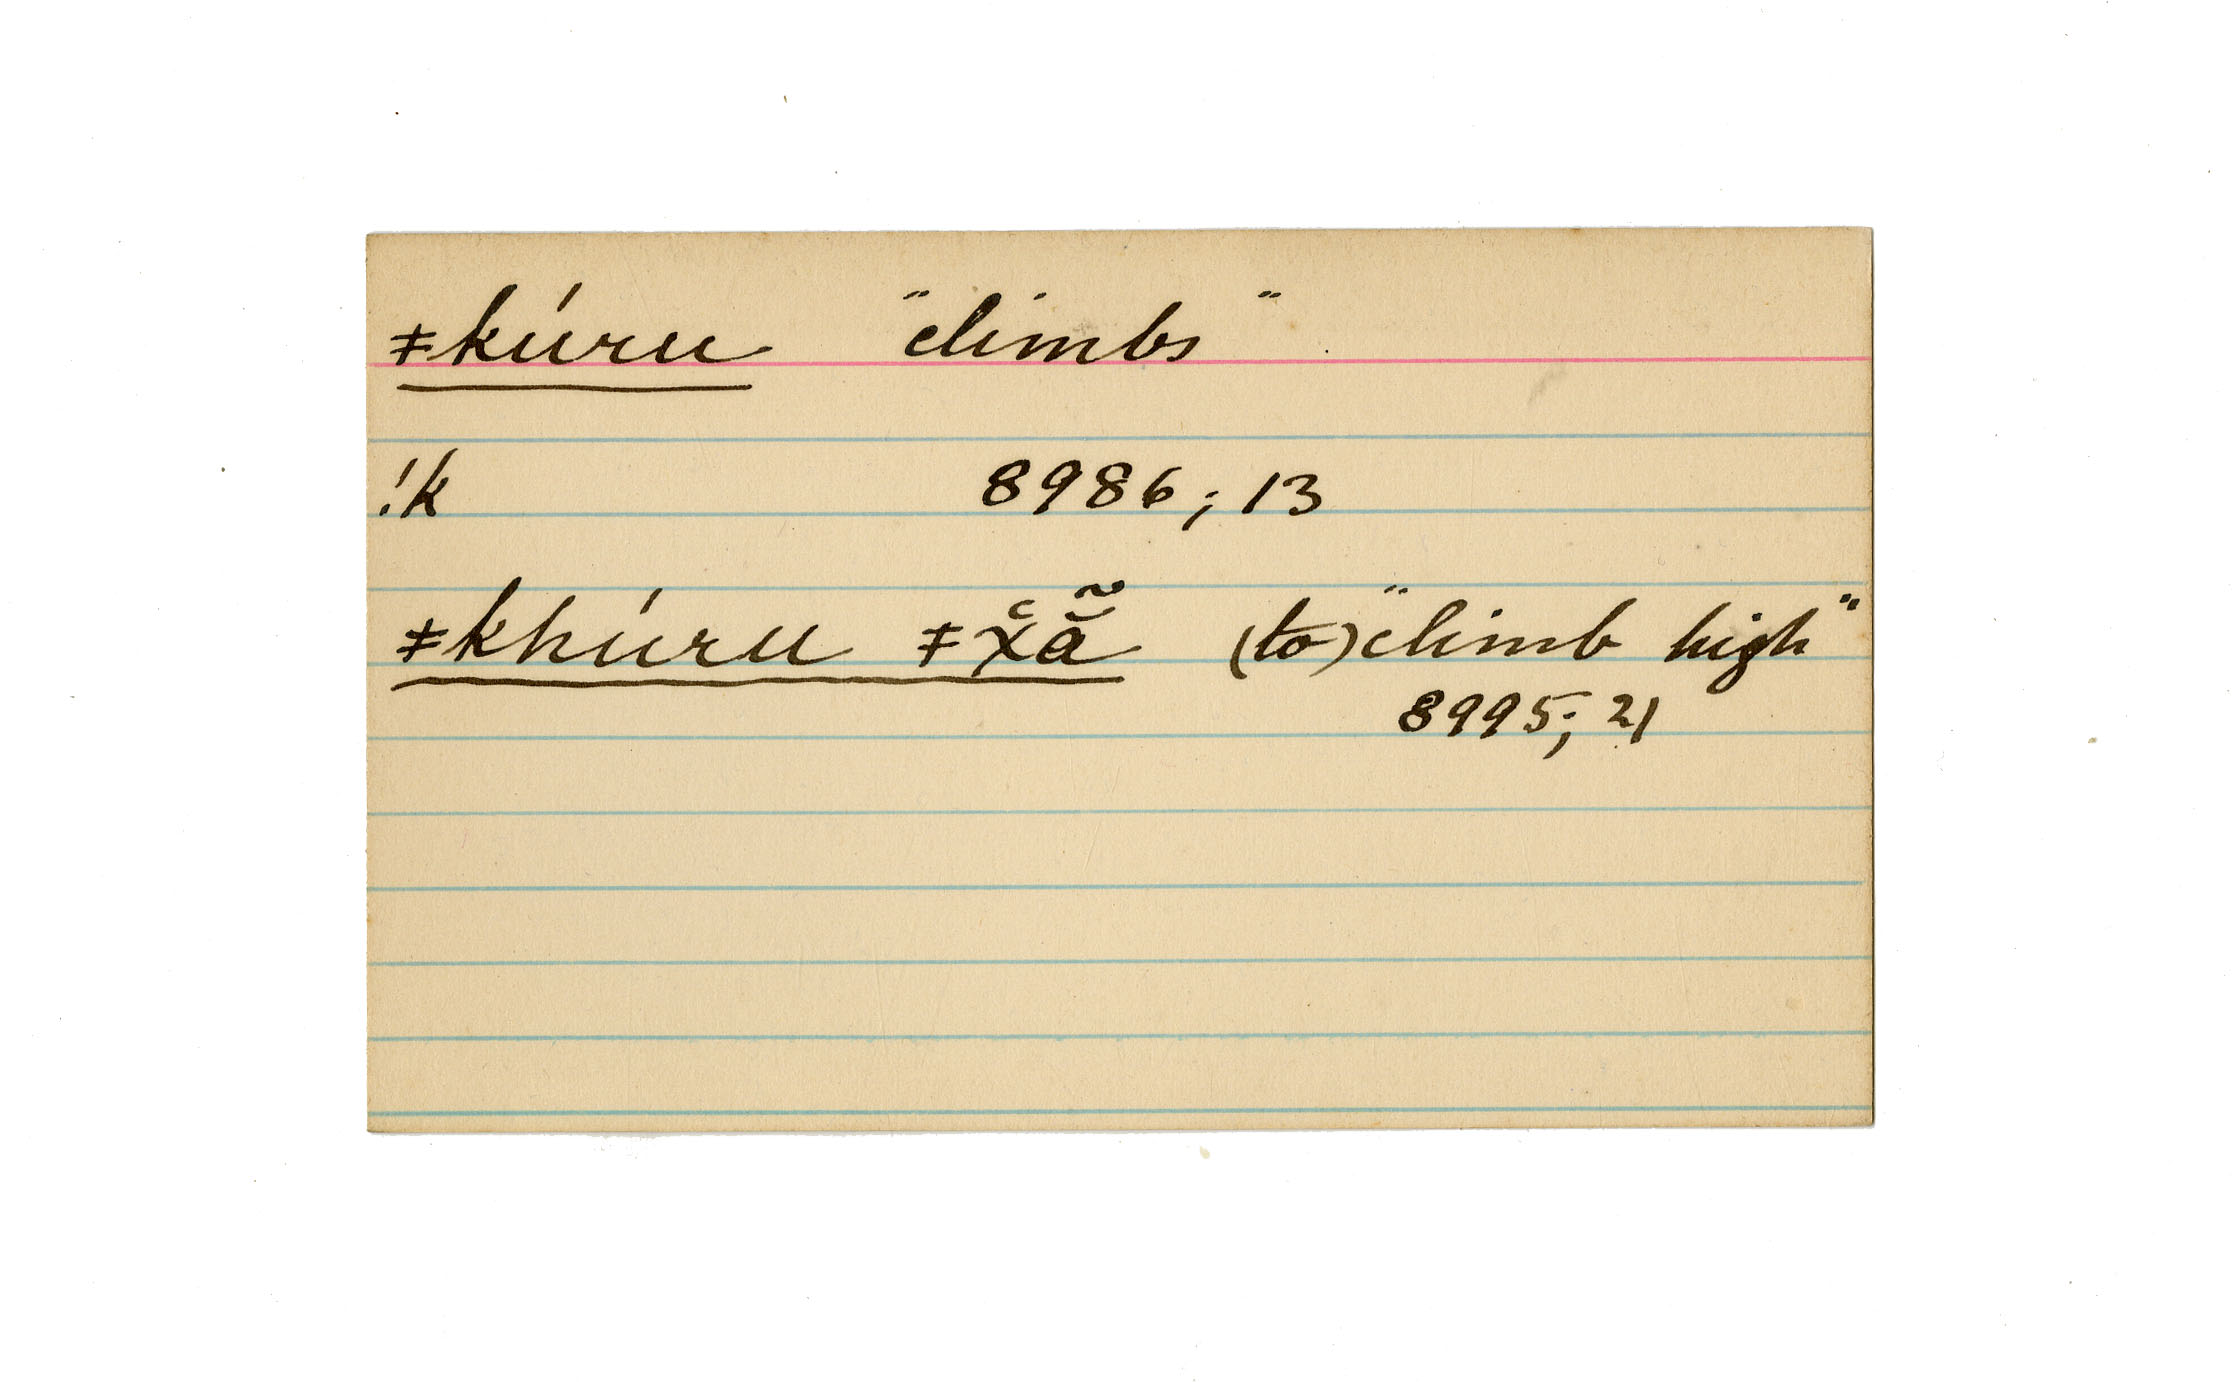 ǂkúru "climbs"
!k 8986; 13
ǂkhúru ǂx̆̔ã̆ (to) "climb high"
8995; 21